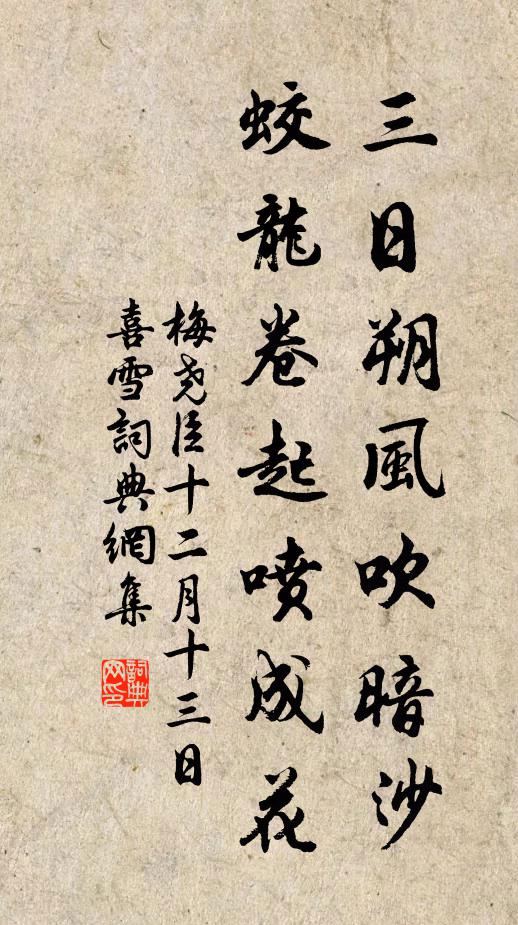 三日朔風吹暗沙
蛟龍卷起噴成花
梅尧臣十二月十三日
喜雪詞典網集
詞典网印